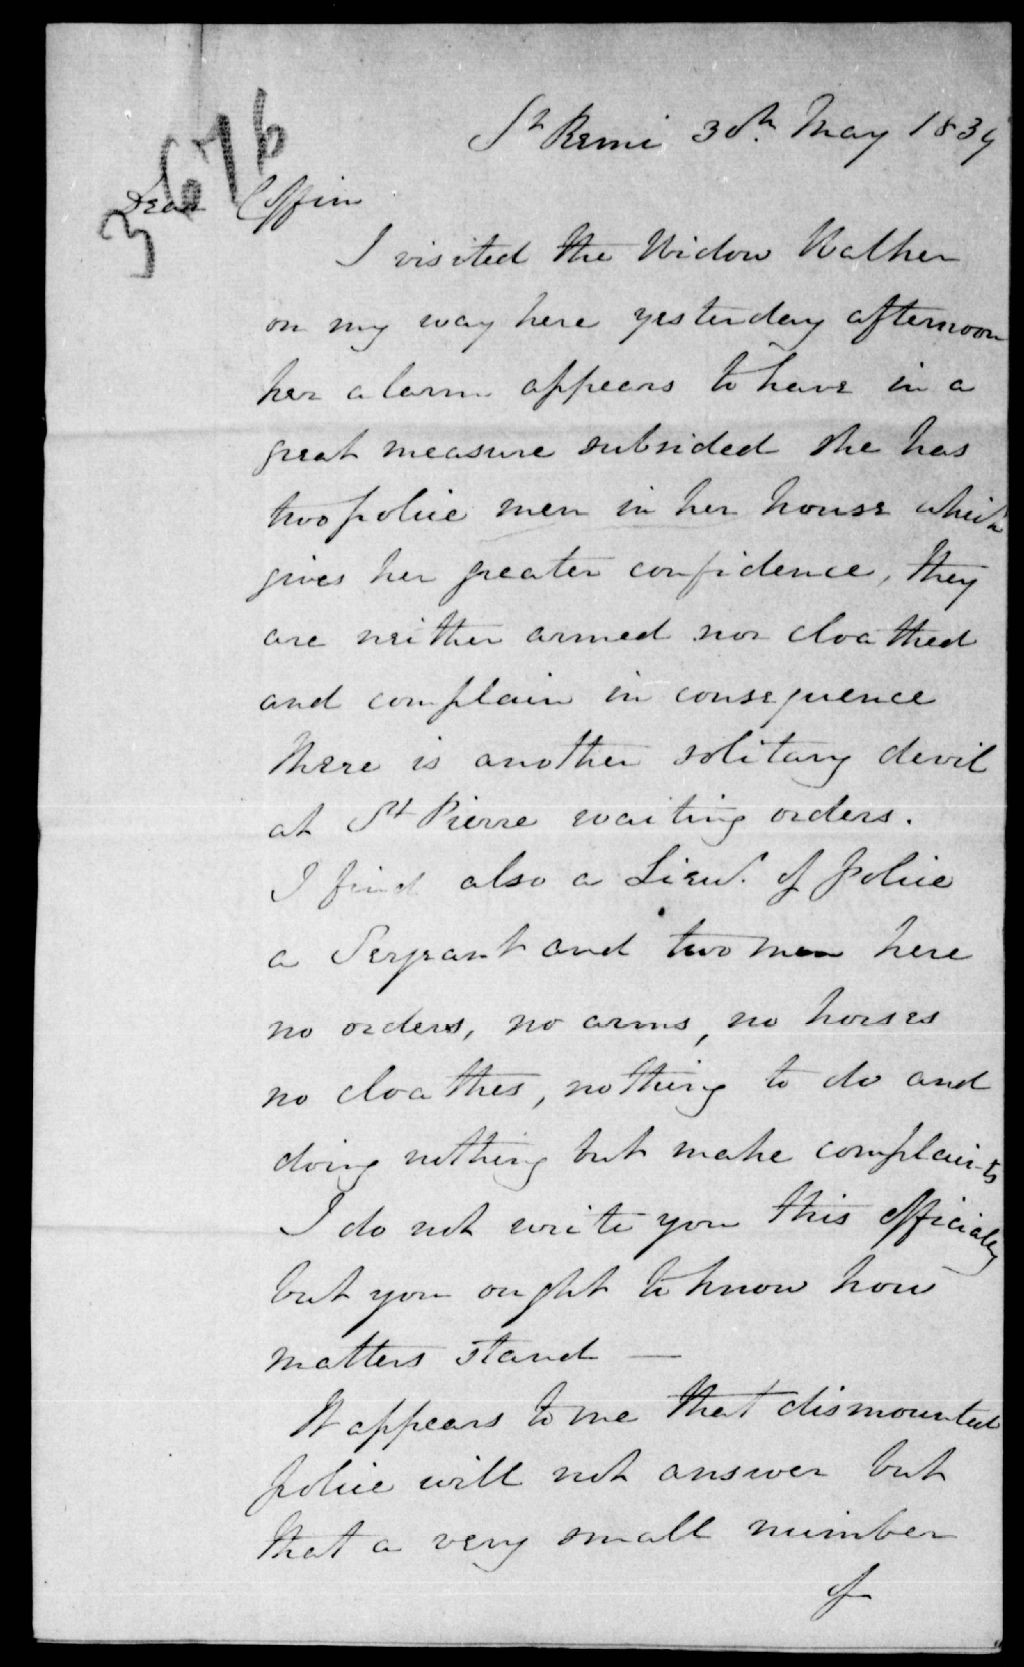 St Remi 30th May 1839
3676
Dear Coffin
I visited the Widow Walker
on my way here yesterday afternoon
her alarm appears to have in a
great measure subsided she has
two police men in her house which
gives her greater confidence, they
are neither armed nor cloathed
and complain in consequence
there is another solitary devil
at St Pierre waiting orders.
I find also a Lieut. of police
a Sergeant and two men here
no orders, no arms, no horses
no cloathes, nothing to do and
doing nothing but make complaints
I do not write you this officialy
but you ought to know how
matters stand —
It appears to me that dismounted
police will not answer but
that a very small number
of